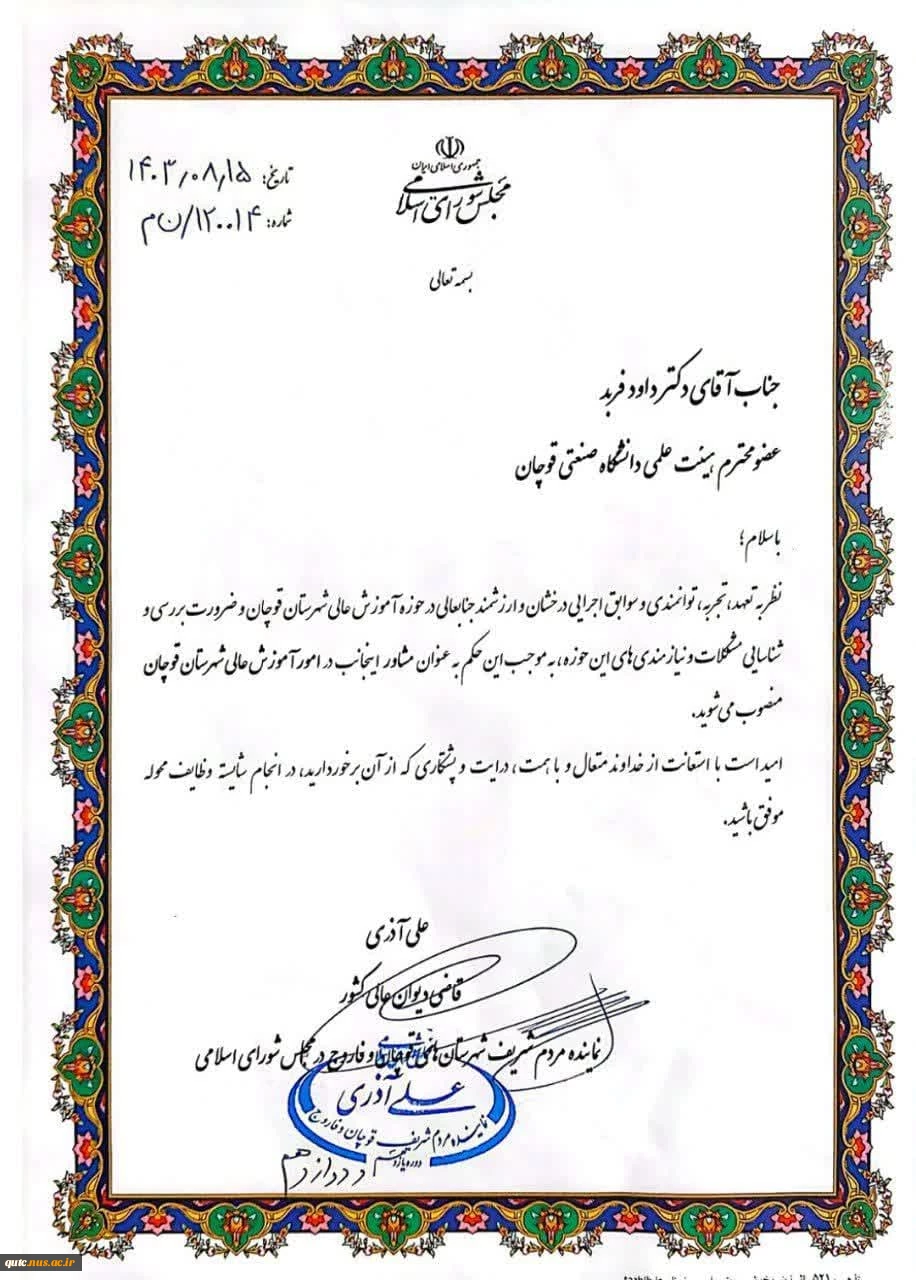 جمهوری اسلامی ایران
مجلس شورای اسلامی
تاریخ: ۱۴۰۳/۰۸/۱۵
شماره: ۱۲۰۰۱۴/ن م
بسمه تعالی
جناب آقای دکتر داود فربد
عضو محترم هیئت علمی دانشگاه صنعتی قوچان
با سلام؛
نظر به تعهد، تجربه، توانمندی و سوابق اجرایی درخشان و ارزشمند جنابعالی در حوزه آموزش عالی شهرستان قوچان و ضرورت بررسی و
شناسایی مشکلات و نیازمندی‌های این حوزه، به موجب این حکم به عنوان مشاور اینجانب در امور آموزش عالی شهرستان قوچان
منصوب می‌شوید.
امید است با استعانت از خداوند متعال و با همت، درایت و پشتکاری که از آن برخوردارید، در انجام شایسته وظایف محوله
موفق باشید.
علی آذری
قاضی دیوان عالی کشور
نماینده مردم شریف شهرستان‌های قوچان و فاروج در مجلس شورای اسلامی
علی آذری
نماینده مردم شریف قوچان و فاروج
دوره یازدهم
دوازدهم
qutc.nus.ac.ir